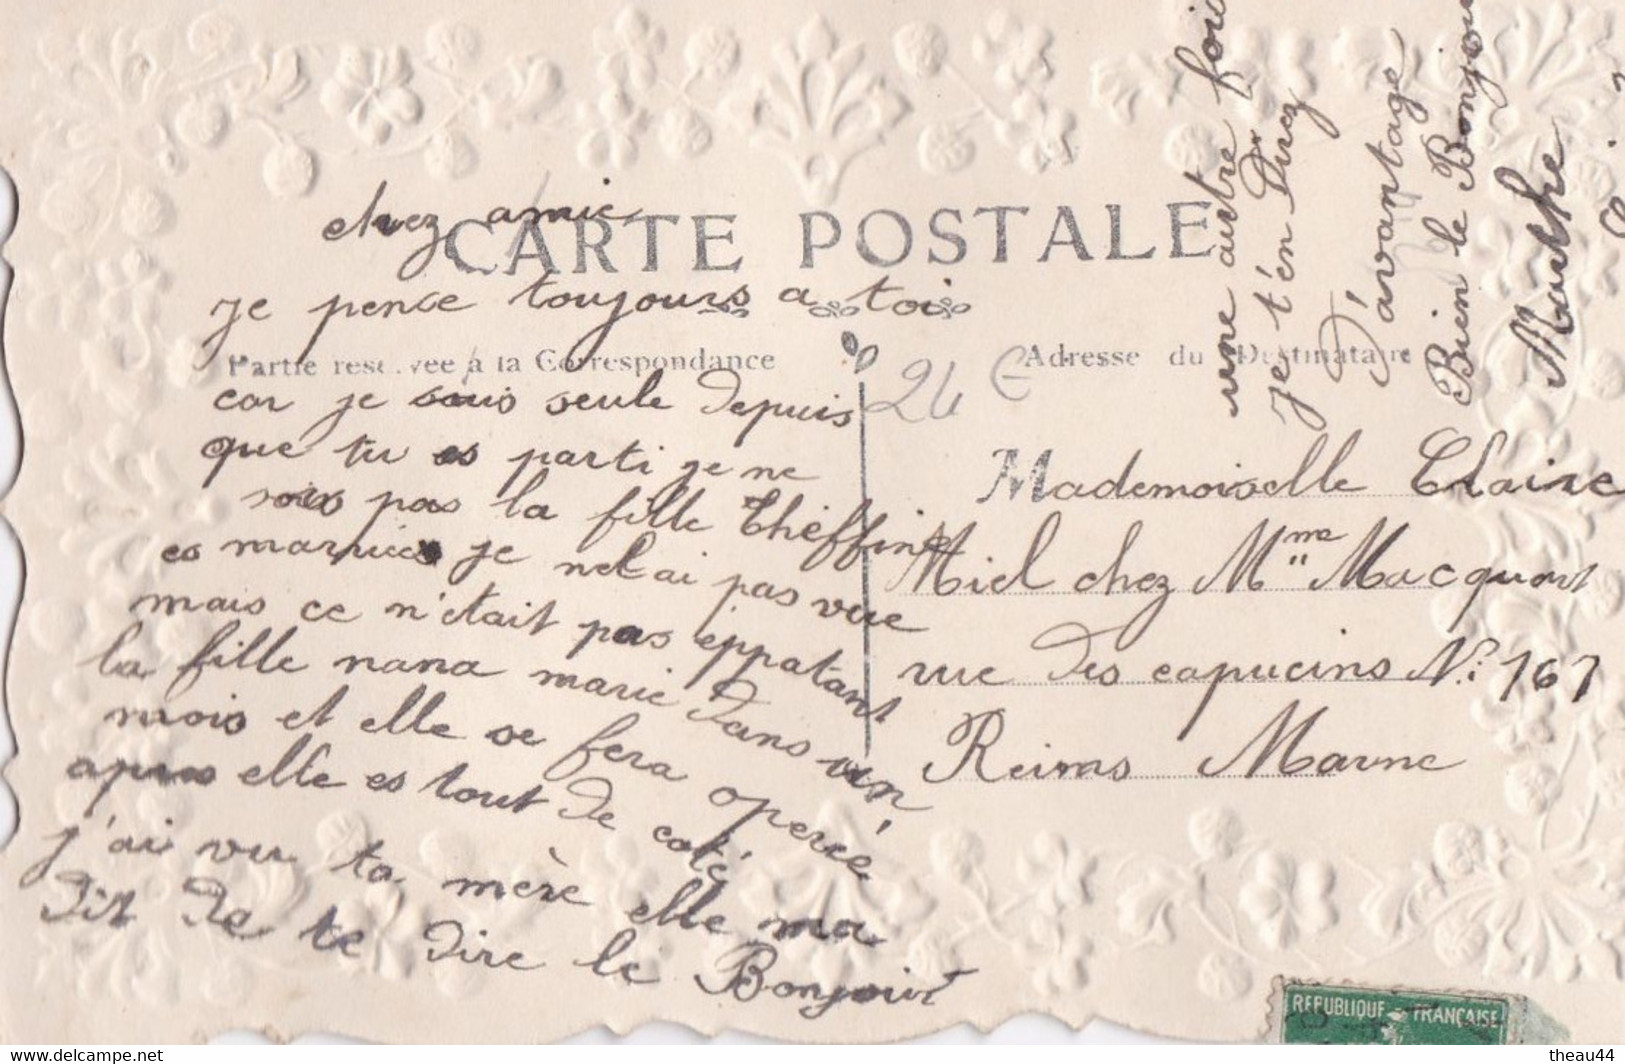 chez amie
CARTE POSTALE
je pence toujours a toi
Partie reservee a la Correspondance
car je suis seule depuis
que tu es parti je ne
sais pas la fille Theffine
es marriée je nelai pas vue
mais ce n'etait pas eppatant
la fille nana marie dans un
mois et elle se fera operée
apres elle es tout de coté
j'ai vu ta mère elle ma
dit de te dire le Bonjour
une autre fois
je t'en direz
d'avantage
Bien le Bonjour
Marthe
24 €
Adresse du Destinataire
Mademoiselle Claire
Miel chez Mme Macquart
rue des capucins N: 167
Reims Marne
REPUBLIQUE FRANÇAISE
delcampe.net
theau44